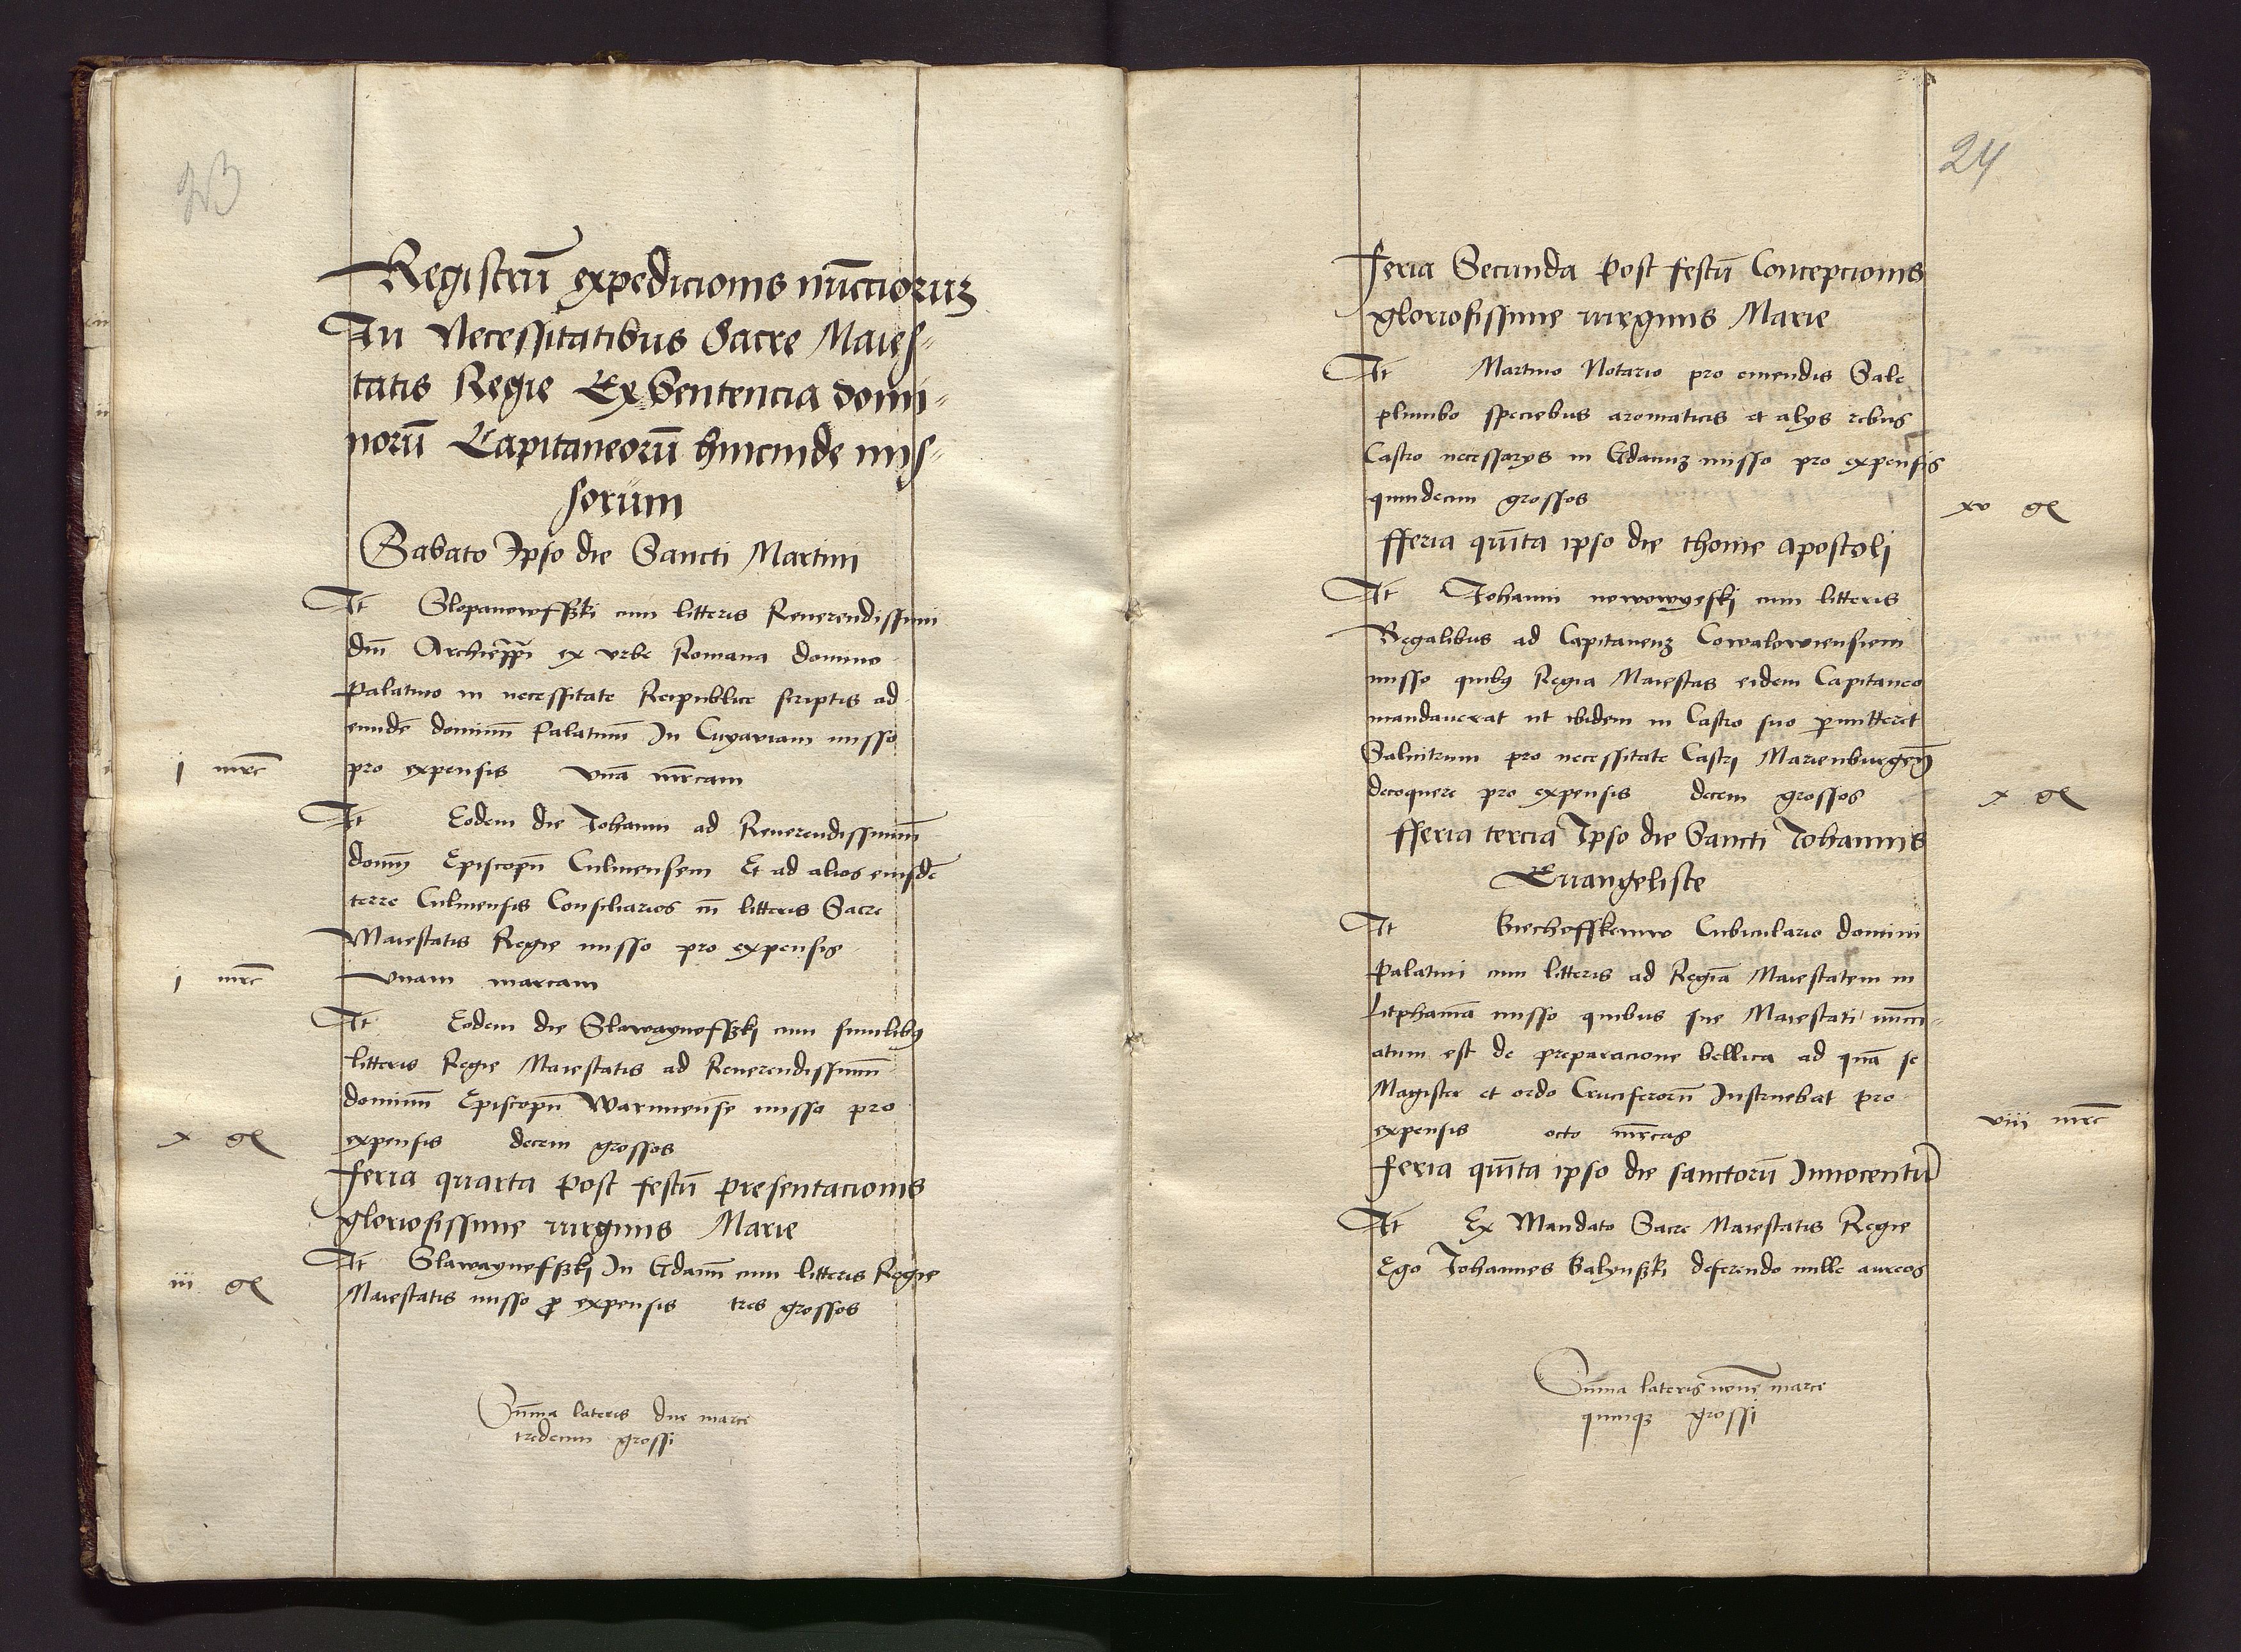 Registrū expedicionis nūcciorum
In Necessitatibus Sacre Maies-
tatis Regie Ex Sentencia domi-
norū Capitaneorū hincinde mis-
sorum
Sabato Ipso die Sancti Martini
It Slopanowsski cum litteris Reverendissimi
dni Archiepi ex urbe Romana domino
palatino in necessitate Reipublice scriptis ad
eundē dominū Palatinū In Cuyaviam misso
j mrc pro expensis unā mrcam
It Eodem die Johanni ad Reverendissimū
domnū Episcopū Culmensem Et ad alios eiusdē
terre Culmensis Consiliarios cū litteris Sacre
Maiestatis Regie misso pro expensis
j mrc unam marcam
It Eodem die Slawaynesski cum similibus
litteris Regie Maiestatis ad Reverendissimū
dominū Episcopū Warmiensē misso pro
x gr expensis decem grossos
Feria quarta post festū presentacionis
gloriosissime virginis Marie
It Slawaynesskj In Gdanū cum litteris Regie
iij gr Maiestatis misso p expensis tres grossos
Sūma lateris due marce
tredecim grossi
24
Feria Secunda post festū Concepcionis
gloriosissime virginis Marie
It Martino Notario pro emendis Sale
plumbo speciebus aromaticis et alys rebus
Castro necessarys in Gdanum misso pro expensis
quindecim grossos xv gr
fferia quīta ipso die thome apostoli
It Johanni nowowyeski cum litteris
Regalibus ad Capitaneum Cowalowiensem
misso quibus Regia Maiestas eidem Capitaneo
mandaverat ut ibidem in Castro suo pmitteret
Salnitrum pro necessitate Castrj Marienburgen
decoquere pro expensis decem grossos x gr
fferia tercia Ipso die Sancti Johannis
Evangeliste
It Byechoffskemw Cubiculario domini
palatini cum litteris ad Regiā Maiestatem in
litphaniā misso quibus sue Maiestati nūcci-
atum est de preparacione bellica ad quā se
Magister et ordo Cruciferorū Instruebat pro
expensis octo mrcas viij mrc
Feria quīta ipso die sanctorū Innocentū
It Ex Mandato Sacre Maiestatis Regie
Ego Johannes Balynski deferendo mille aureos
Sūma lateris novē marce
quinque grossi